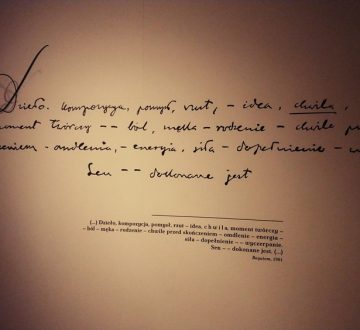 Dzieło. Kompozycja, pomysł, rzut, – idea, chwila,
moment twórczy – – ból, męka – rodzenie – chwile
– omdlenia, – energia, siła – dopełnienie –
Sen – – dokonane jest
(...) Dzieło, kompozycja, pomysł, rzut – idea, c h w i l a, moment twórczy –
– ból – męka – rodzenie – chwile przed skończeniem – omdlenie – energia –
siła – dopełnienie – – wyczerpanie.
Sen – – dokonane jest. (...)
Requiem, 1901